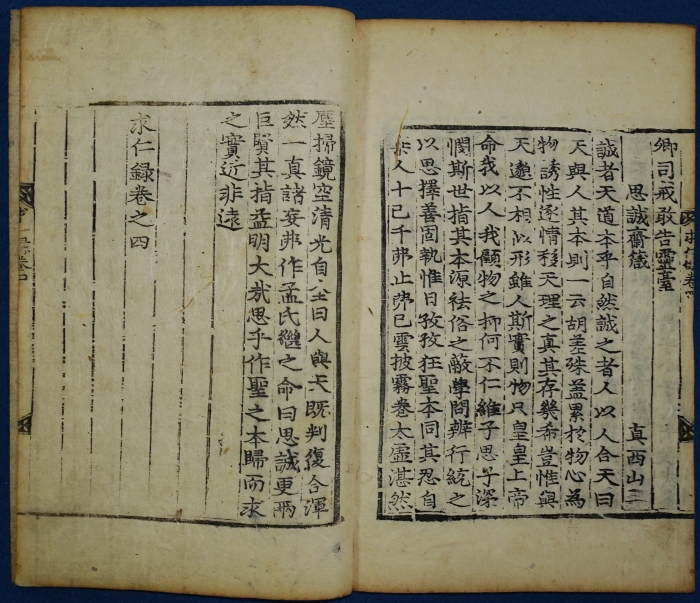 卿司戒敢告靈臺
思誠齋箴 真西山
誠者天道本乎自然誠之者人以人合天曰
天與人其本則一云胡差殊益累於物心為
物誘性逐情移天理之真其存幾希豈惟與
天邈不相似形雖人斯實則物只皇皇上帝
命我以人我顧物之抑何不仁維子思子深
憫斯世指其本源祛俗之蔽學問辨行統之
以思擇善固執惟日孜孜狂聖本同其忍自
棄人十己千弗止弗已雲披霧卷太虛湛然
塵掃鏡空清光自全曰人與天既判復合渾
然一真諸妄弗作孟氏繼之命曰思誠更兩
巨賢其指益明大哉思乎作聖之本歸而求
之實近非遠
求仁錄卷之四